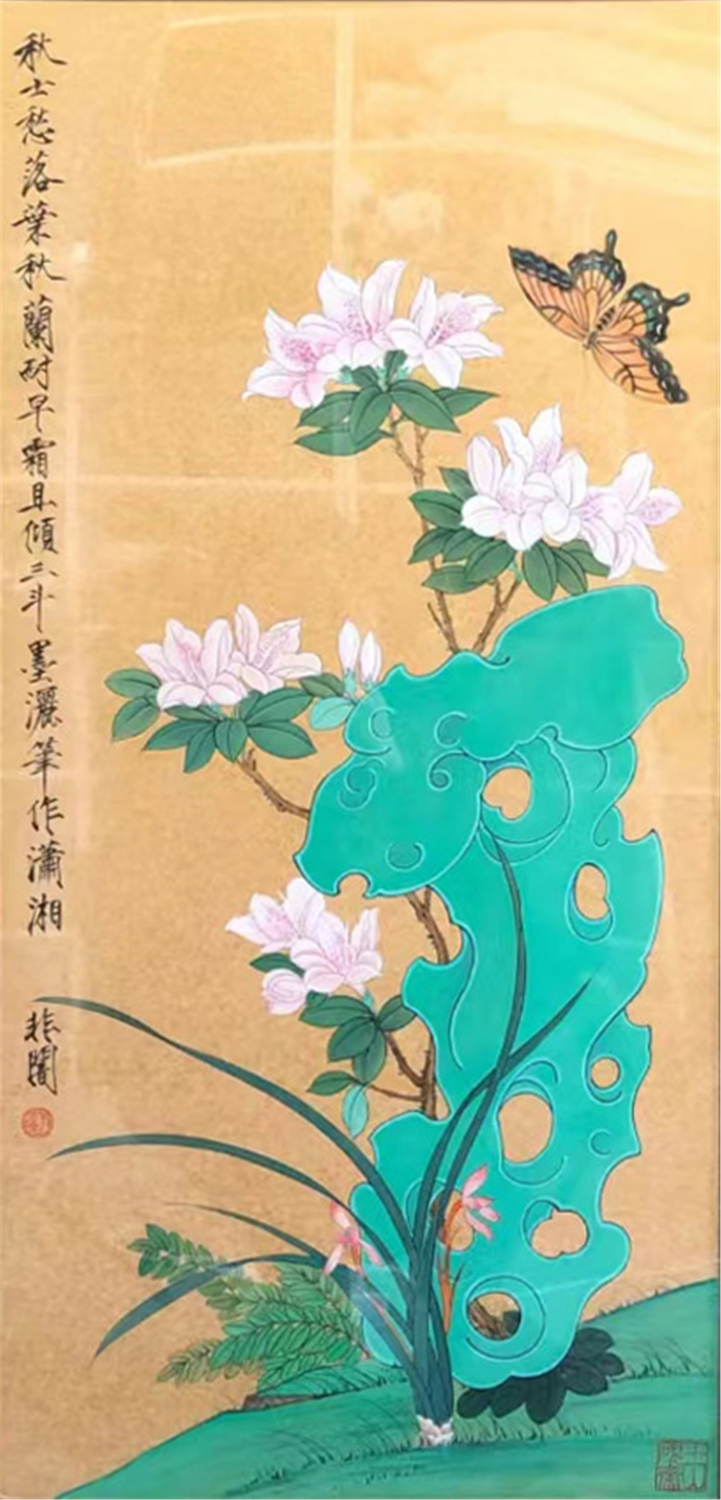 秋士愁落葉秋蘭耐早霜且傾三斗墨灑筆作瀟湘
非闇